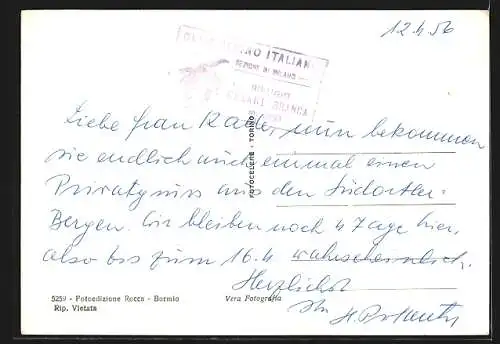 12.4.56
CLUB ALPINO ITALIANO
SEZIONE DI MILANO
RIFUGIO
CESARE BRANCA
Liebe Frau Kader, nun bekommen
sie endlich auch einmal einen
Privatgruss aus den Südortler-
Bergen. Wir bleiben noch 4 Tage hier,
also bis zum 16.4 wahrscheinlich.
Herzlichst
Ihr
FOTOCELERE - TORINO
5259 - Fotoedizione Rocca - Bormio
Rip. Vietata
Vera Fotografia